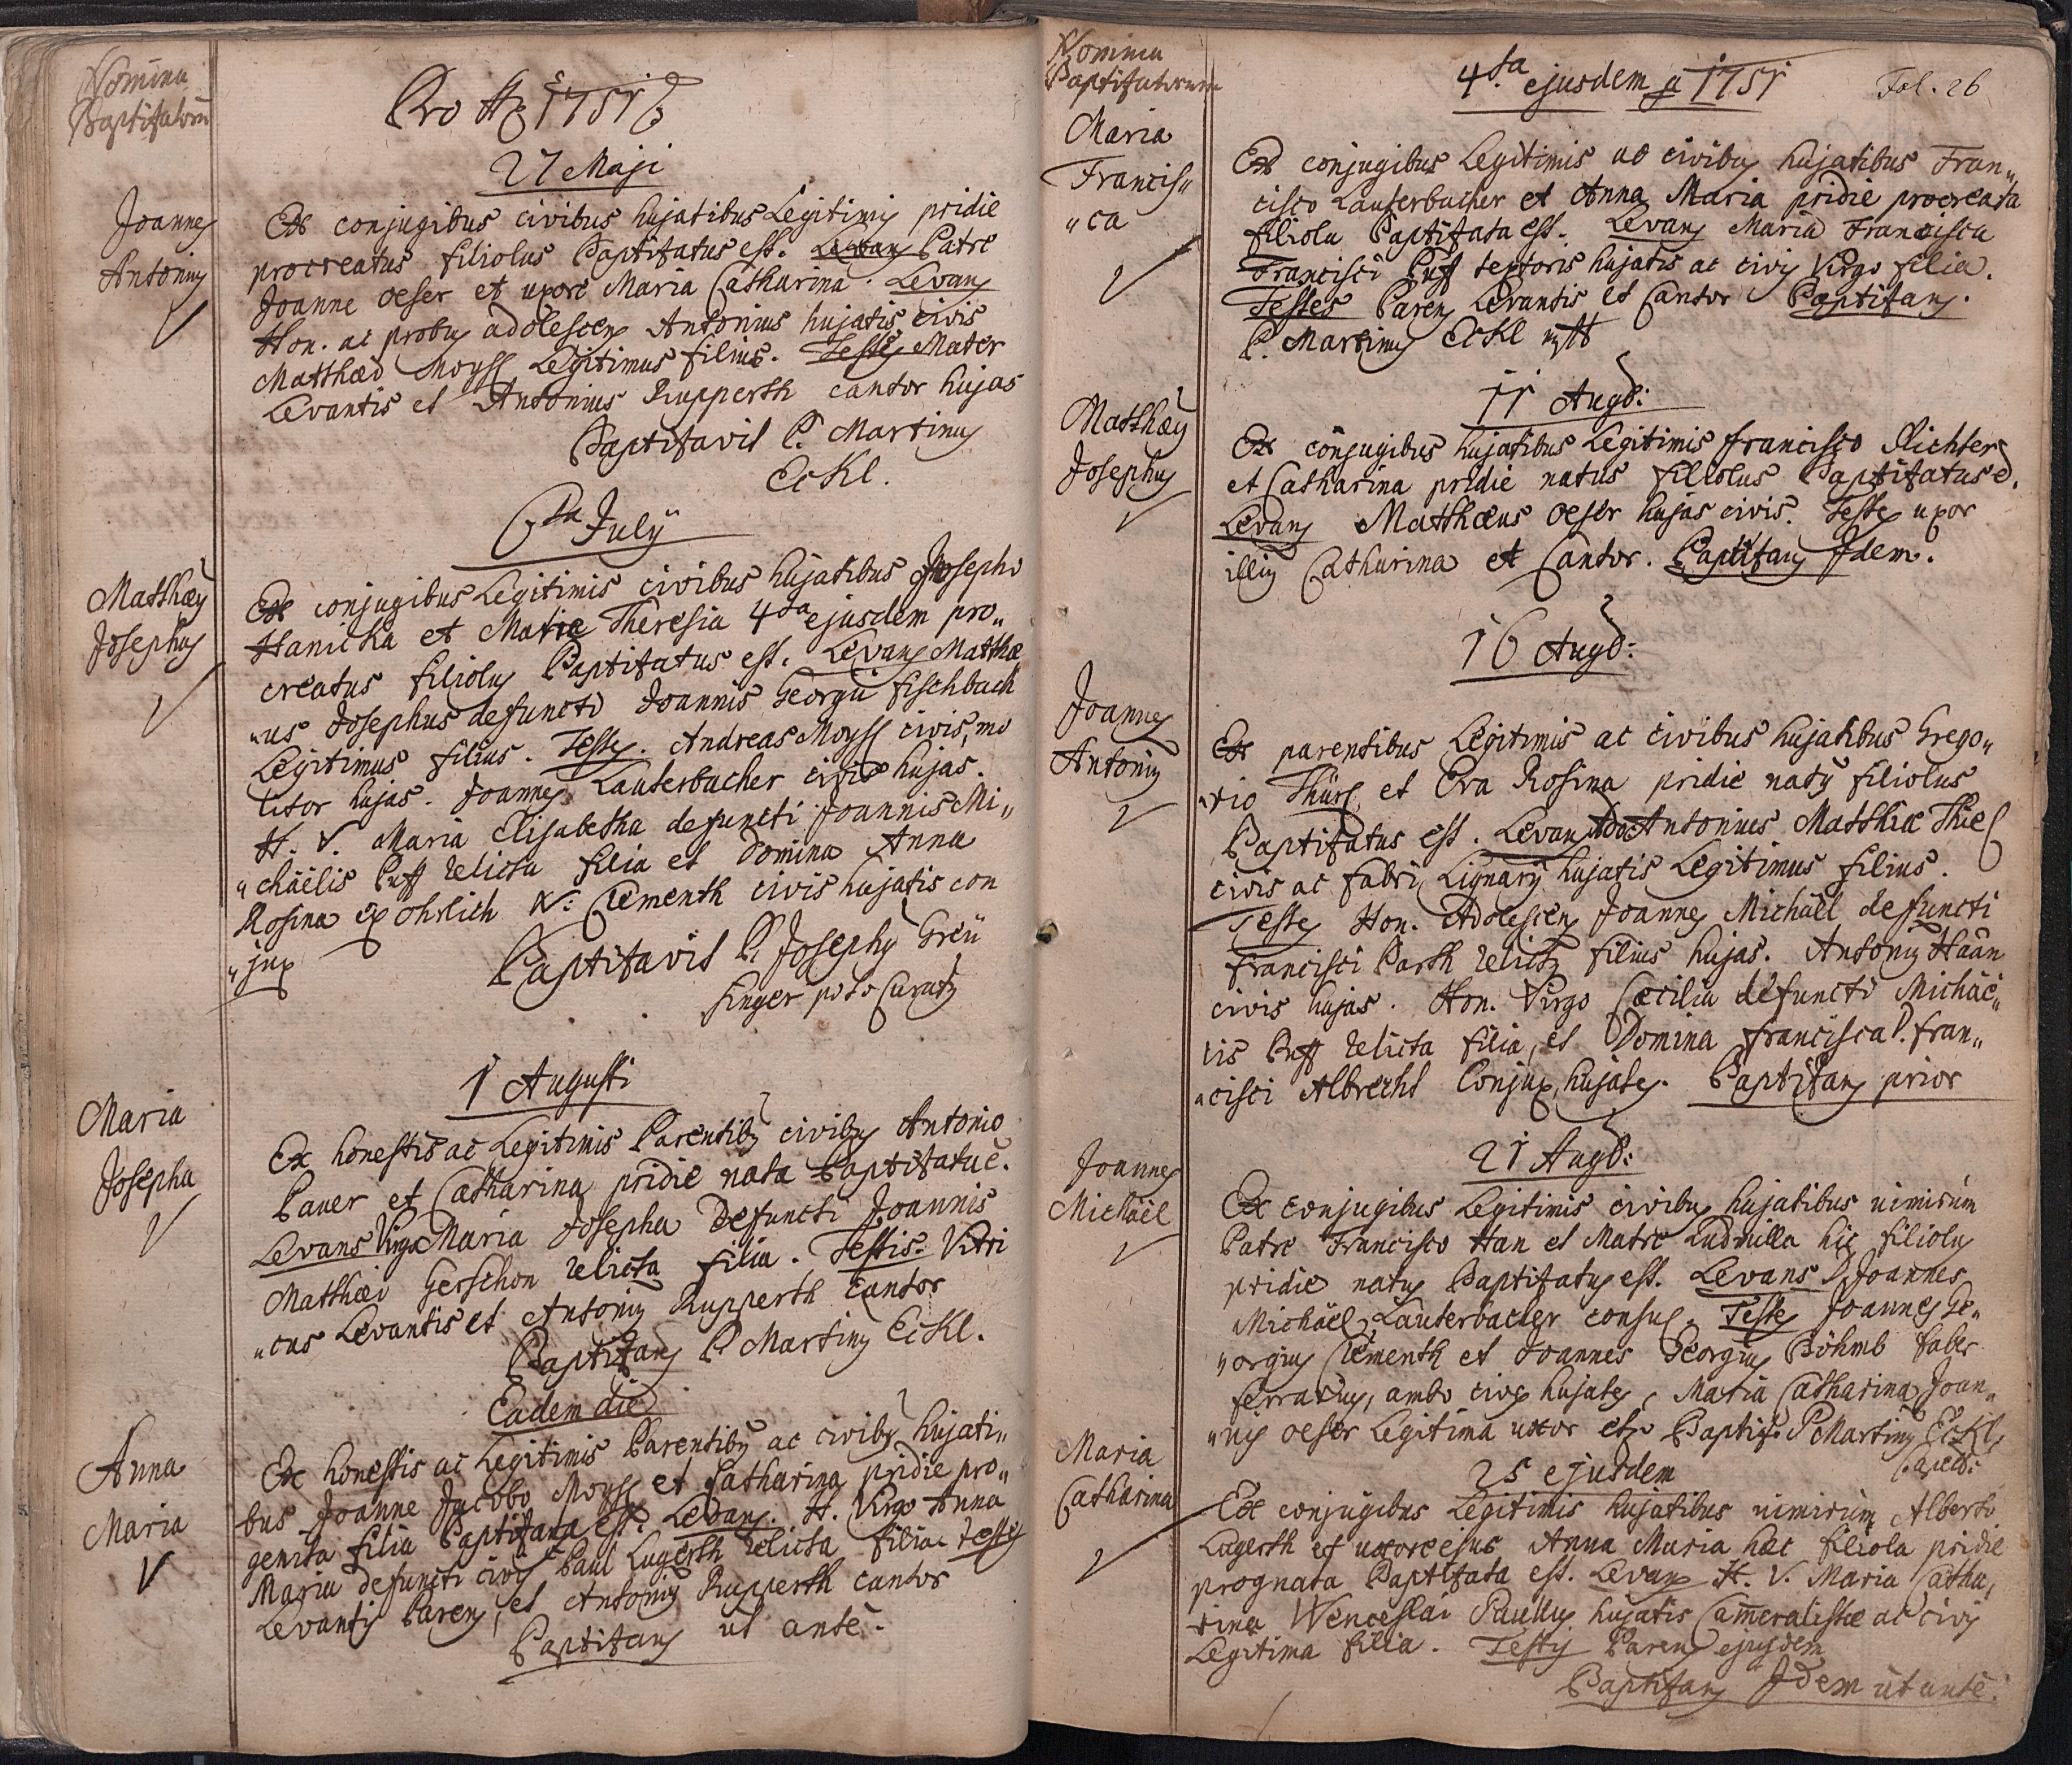 Nomina
Baptisatorū
Pro Ao 1751
27 Maji
Joannes
Antonius
Ex conjugibus civibus hujatibus Legitimis pridie
procreatus filiolus Baptisatus est. Levans Patre
Joanne Oeser et uxore Maria Catharina. Levans
Hon. ac probus adolescens Antonius hujatis civis
Matthæo Moyss Legitimus filius. Testes Mater
Levantis et Antonius Rupperth cantor hujas
Baptisavit P. Martinus
Eckl.
6ta July
Matthæus
Josephus
Ex conjugibus Legitimis civibus hujatibus Josepho
Hanicka et Maria Theresia 4ta ejusdem pro„
creatus filiolus Baptisatus est. Levans Matthæ
„us Josephus defuncti Joannis Georgii Fischbach
Legitimus filius. Testes. Andreas Moyss civis, mo
litor hujas. Joannes Lauterbacher civis hujas.
H. V. Maria Elisabetha defuncti Joannis Mi„
„chäelis Puff relicta filia et Domina Anna
Rosina ex Ohrlich N: Clementh civis hujatis con
„jux
Baptisavit P. Josephus Greü
singer p:t: Curatus
1 Augusti
Maria
Josepha
Ex honestis ac Legitimis Parentibus civibus Antonio
Paner et Catharina pridie nata Baptisatu ē.
Levans Virgo Maria Josepha Defuncti Joannis
Matthæi Gerschon relicta filia. Testis. Vitri
„cus Levantis et Antonius Rupperth Cantor
Baptisans P. Martinus Eckl.
Eadem die
Anna
Maria
Ex honestis ac Legitimis Parentibus ac civibus hujati„
bus Joanne Jacobo Moyss et Catharina pridie pro„
genita filia Baptisata est. Levans. H. Virgo Anna
Maria defuncti civis Paul Lugerth relicta filia. Testes
Levantis Parens, et Antonius Rupperth cantor
Baptisans ut ante.
Nomina
Baptisatorum
4ta ejusdem a 1751
Fol. 26
Maria
Francis„
„ca
Ex conjugibus Legitimis ac civibus hujatibus Fran„
cisco Lauterbacher et Anna Maria pridie procreata
filiola Baptisata est. Levans Maria Francisca
Francisci Puff textoris hujatis ac civis Virgo filia.
Testes Parens Levantis et Cantor Baptisans.
P. Martinus Eckl
11 Augti:
Matthæus
Josephus
Ex conjugibus hujatibus Legitimis Francisco Richter
et Catharina pridie natus filiolus Baptisatus ē.
Levans Matthæus Oeser hujas civis. Testes uxor
illius Catharina et Cantor. Baptisans Idem.
16 Augti:
Joannes
Antonius
Ex parentibus Legitimis ac civibus hujatibus Grego„
„rio Thürl et Eva Rosina pridie natus filiolus
Baptisatus est. Levans Antonius Matthiæ Thiel
civis ac fabri Lignarij hujatis Legitimus filius.
Testes Hon. Adolescens Joannes Michäel defuncti
Francisci Barth relictus filius hujas. Antonius Haan
civis hujas. Hon. Virgo Cæcilia defuncti Michäe„
lis Puff relicta filia, et Domina Francisca D. Fran„
„cisci Albrecht Conjux hujates. Baptisans prior
21 Augti:
Joannes
Michäel
Ex conjugibus Legitimis civibus hujatibus nimirùm
Patre Francisco Han et Matre Ludmilla hic filiolus
pridie natus Baptisatus est. Levans D. Joannes
Michäel Lauterbacher consul. Testes Joannes Ge„
„orgius Clementh et Joannes Georgius Böhmb faber
ferrarius, ambo cives hujates, Maria Catharina Joan„
„nis Oeser Legitima uxor etc Baptis. P Martinus Eckl
Capell:
25 ejusdem
Maria
Catharina
Ex conjugibus Legitimis hujatibus nimirùm Alberto
Lugerth et uxore ejus Anna Maria hæc filiola pridie
prognata Baptisata est. Levans H. V. Maria Catha„
rina Wenceslai Paullus hujatis Cameralistæ ac civis
Legitima filia. Testes Parens ejusdem
Baptisans Idem ut ante.